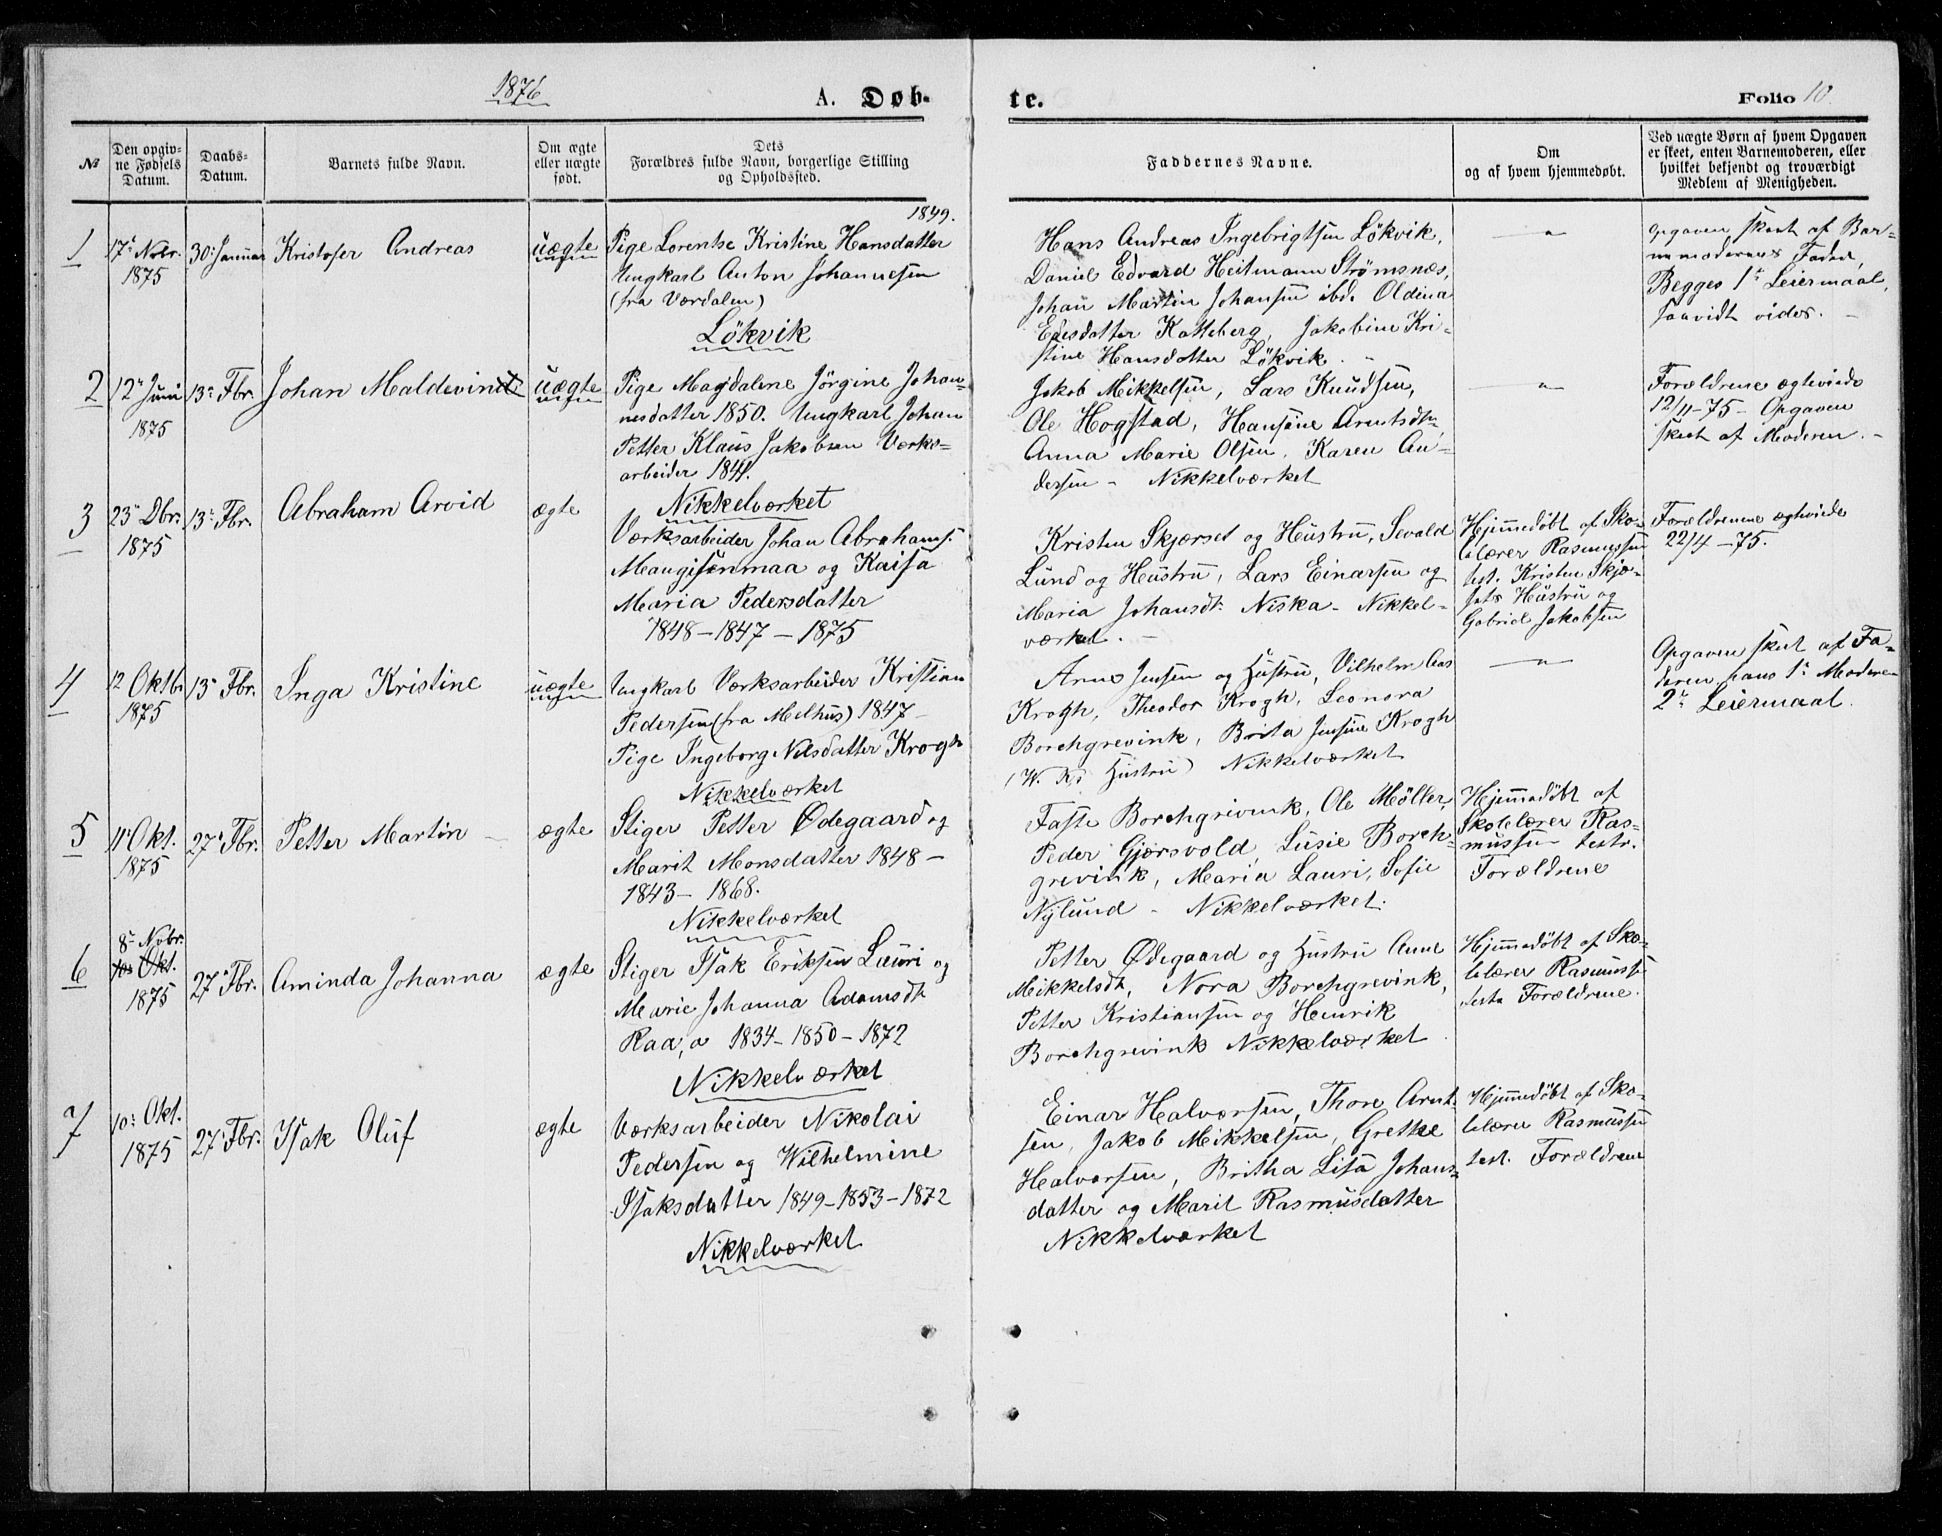 1876
A. Døb-
te.
Folio 10.
№
Den opgiv-
ne Fødsels
Datum.
Daabs-
Datum.
Barnets fulde Navn.
Om ægte
eller uægte
født.
Dets
Forældres fulde Navn, borgerlige Stilling
og Opholdssted.
Faddernes Navne.
Om
og af hvem hjemmedøbt.
Ved uægte Børn af hvem Opgaven
er skeet, enten Barnemoderen, eller
hvilket bekjendt og troværdigt
Medlem af Menigheden.
1
17de Nvbr.
1875
30: Januar
Kristofer Andreas
uægte
1849.
Pige Lorentse Kristine Hansdatter
Ungkarl Anton Johannesen
(fra Værdalen)
Lökvik
Hans Andreas Ingebrigtsen Lökvik,
Daniel Edvard Heitmann Strømsnæs,
Johan Martin Johansen ibd. Oldina
Edesdatter Kalleberg, Jakobine Kri-
stine Hansdatter Lökvik.
— " —
Opgaven skeet af Bar-
nemoderens Fader,
Begges 1ste Leiermaal,
saavidt vides. —
2
12te Juni
1875
13: Fbr.
Johan Maldevin
uægte
Pige Magdalene Jörgine Johan-
nesdatter 1850. Ungkarl Johan
Petter Klaus Jakobsen Værks-
arbeider 1841.
Nikkelværket
Jakob Mikkelsen, Lars Knudsen,
Ole Hogstad, Hansine Arntsdt.
Anna Marie Olsen. Karen An-
dersen - Nikkelværket
— " —
Forældrene ægteviede
12/11-75 - Opgaven
skeet af Moderen. -
3
23de Dbr.
1875
13: Fbr.
Abraham Arvid
ægte
Værksarbeider Johan Abrahams.
Maugisenmaa og Kaisa
Maria Pedersdatter
1848 - 1847 - 1875
Kristen Skjærset og Hustru, Sevald
Lund og Hustru, Lars Einarsen og
Maria Johansdt. Niska - Nikkel-
værket. -
Hjemmedøbt af Sko-
lelærer Rasmussen
test. Kristen Skjæ-
sets Hustru og
Gabriel Jakobsen
Forældrenene ægteviede
22/4 -75.
4
12 Oktbr.
1875
13: Fbr.
Inga Kristine
uægte
Ungkarl Værksarbeider Kristian
Pedersen (fra Melhus) 1847 -
Pige Ingeborg Nilsdatter Krogh
Nikkelværket
Arne Jensen og Hustru, Vilhelm Aas
Krogh, Theodor Krogh, Leonora
Borchgrevink, Brita Jensine Krogh
(W. Ks Hustru) Nikkelværket
— " —
Opgaven skeet af Fa-
deren, hans 1ste Moderens
2den Leiermaal.
5
11: Okt.
1875
27: Fbr.
Petter Martin -
ægte
Stiger Petter Ødegaard og
Marit Monsdatter 1848 -
1843 - 1868.
Nikkelværket
Faste Borchgrevink, Ole Möller,
Peder Gjærsvold, Lusie Borch-
grevink, Maria Lauri, Sofie
Nylund - Nikkelværket.
Hjemmedøbt af
Skolelærer Ras-
mussen testr.
Forældrene
6
8de Nvbr.
Okt.
1875
27: Fbr.
Aminda Johanna
ægte
Stiger Isak Eriksen Lauri og
Marie Johanna Adamsdt
Raa,a 1834 - 1850 - 1872
Nikkelværket
Petter Ødegaard og Hustru Anne
Mikkelsdt, Nora Borchgrevink,
Petter Kristiansen og Henrik
Borchgrevink Nikkelværket
Hjemmedøbt af Sko-
lelærer Rasmussen
test. Forældrene.
7
10: Okt.
1875
27: Fbr.
Isak Oluf
ægte
Værksarbeider Nikolai
Pedersen og Wilhelmine
Isaksdatter 1849 - 1853 - 1872
Nikkelværket
Einar Halvorsen, Thore Arnt-
sen, Jakob Mikkelsen, Grethe
Halvorsen, Britha Lisa Johans-
datter og Marit Rasmusdatter
Nikkelværket
Hjemmedøbt af Sko-
lelærer Rasmussen
test. Forældrene